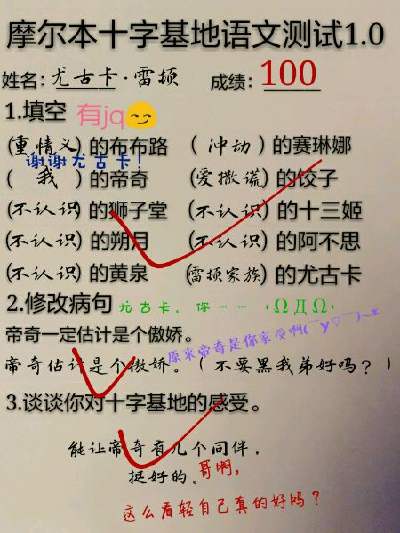 摩尔本十字基地语文测试1.0
姓名:尤古卡·雷顿 成绩:100
1.填空 有jq😏
(重情义)的布布路 (冲动)的赛琳娜
谢谢尤古卡!
(我)的帝奇 (爱撒谎)的饺子
(不认识)的狮子堂 (不认识)的十三姬
(不认识)的朔月 (不认识)的阿不思
(不认识)的黄泉 (雷顿家族)的尤古卡
2.修改病句 尤古卡,你……(ΩДΩ)
帝奇一定估计是个傲娇。
摩米帝奇是你家受啊(￣y▽￣)~*
帝奇估计是个傲娇。(不要黑我弟好吗?)
3.谈谈你对十字基地的感受。
能让帝奇有几个同伴,
挺好的。哥啊,
这么看轻自己真的好吗?